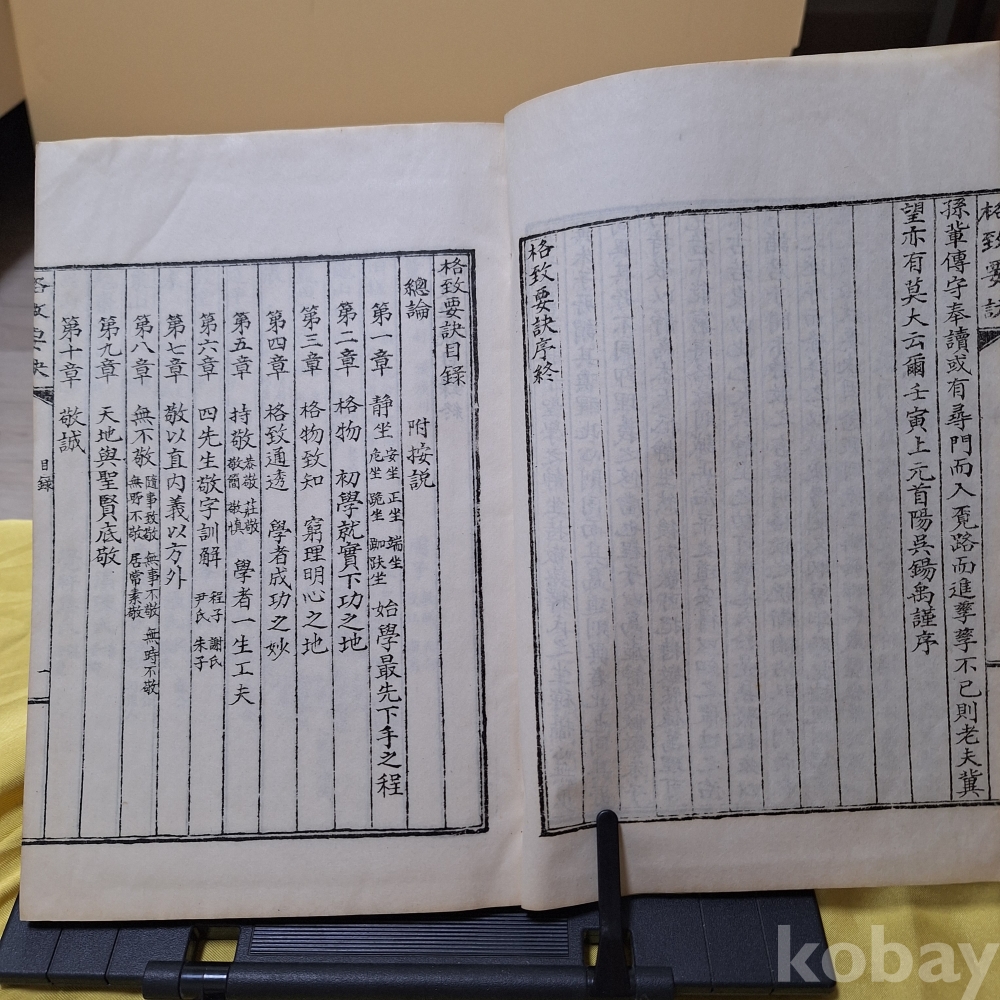 格致要訣
孫輩傳字奉讀或有尋門而入覔路而進孳孳不已則老夫冀
望亦有莫大云爾壬寅上元首陽吳錫禹謹序
格致要訣序終
格致要訣目錄
總論 附按説
第一章 静坐 安坐 正坐 端坐 危坐 跪坐 跏趺坐 始學最先下手之程
第二章 格物 初學就實下功之地
第三章 格物致知 窮理明心之地
第四章 格致通透 學者成功之妙
第五章 持敬 恭敬 莊敬 敬簡 敬慎 學者一生工夫
第六章 四先生敬字訓解 程子 謝氏 尹氏 朱子
第七章 敬以直内義以方外
第八章 無不敬 隨事致敬 無事不敬 無時不敬 無野不敬 居常素敬
第九章 天地與聖賢底敬
第十章 敬誠
格致要訣
目錄
一
kobay